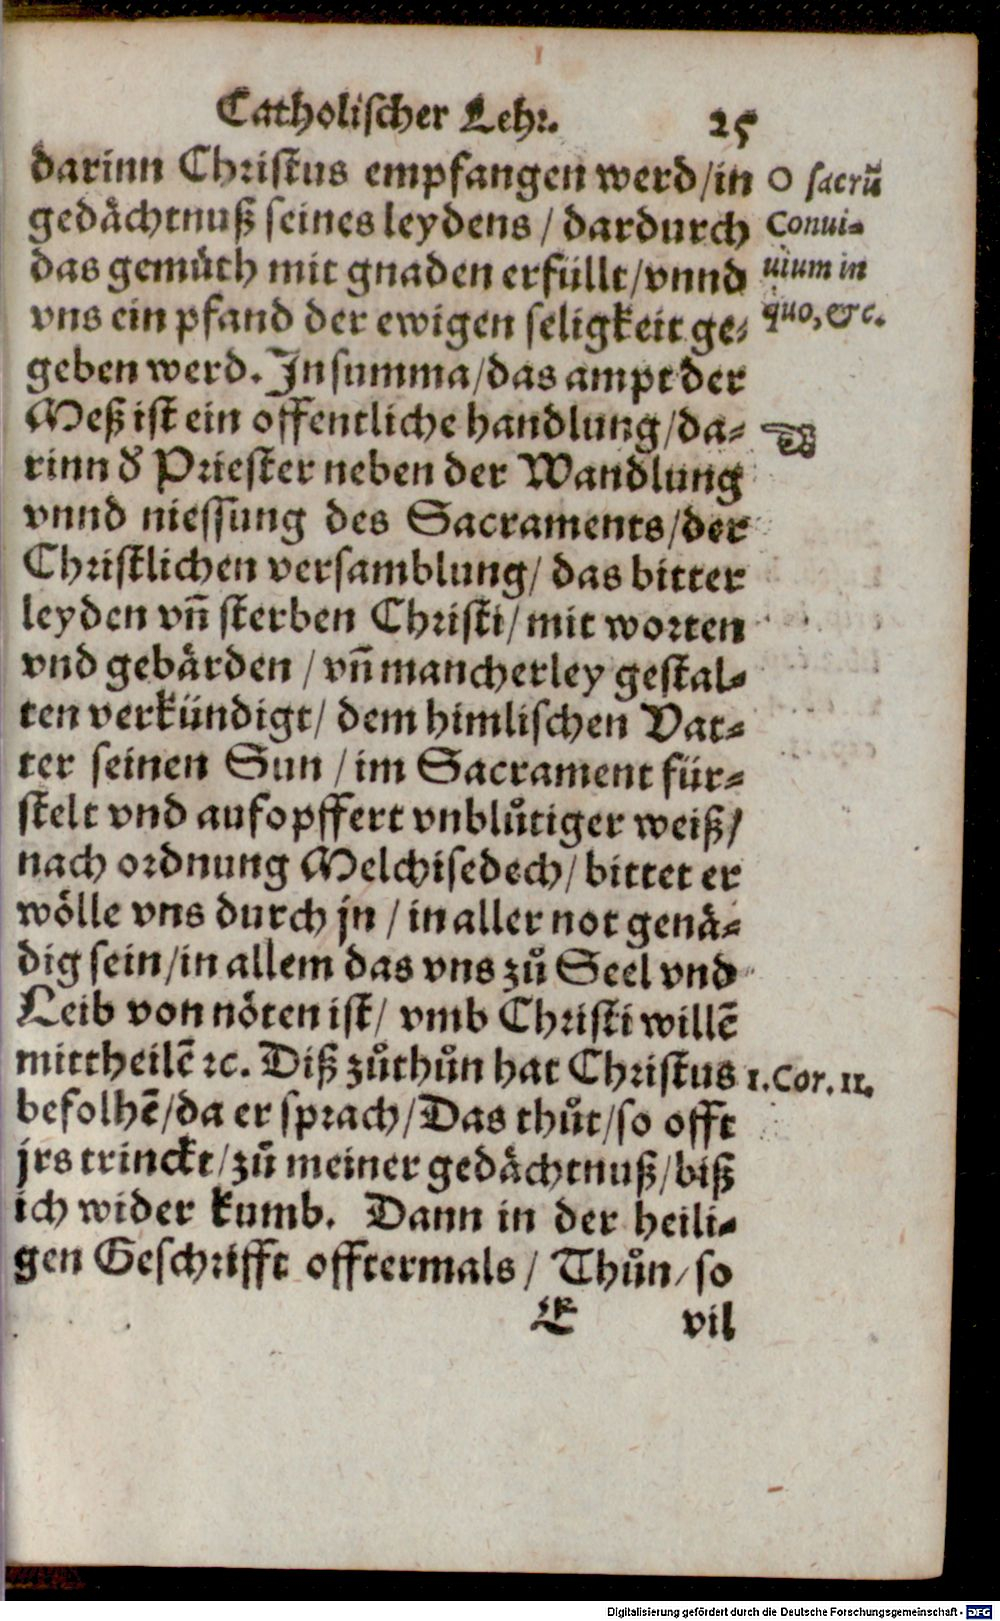 Catholischer Lehr. 25
darinn Christus empfangen werd/in
gedächtnuß seines leydens / dardurch
das gemüth mit gnaden erfüllt/vnnd
vns ein pfand der ewigen seligkeit ge-
geben werd. In summa/das ampt der
Meß ist ein offentliche handlung/da-
rinn d' Priester neben der Wandlung
vnnd niessung des Sacraments/der
Christlichen versamblung/ das bitter
leyden vñ sterben Christi/ mit worten
vnd gebärden / vñ mancherley gestal-
ten verkündigt/ dem himlischen Vat-
ter seinen Sun / im Sacrament für-
stelt vnd aufopffert vnblůtiger weiß/
nach ordnung Melchisedech/ bittet er
wölle vns durch jn / in aller not genä-
dig sein/in allem das vns zů Seel vnd
Leib von nöten ist/ vmb Christi willē
mittheilē ꝛc. Diß zůthůn hat Christus
befolhē/da er sprach/Das thůt/so offt
jrs trinckt/zů meiner gedächtnuß/biß
ich wider kumb. Dann in der heili-
gen Geschrifft offtermals / Thůn/ so
E vil
O sacrū
Conui-
uium in
quo, &c.
1. Cor. 11.
Digitalisierung gefördert durch die Deutsche Forschungsgemeinschaft - DFG